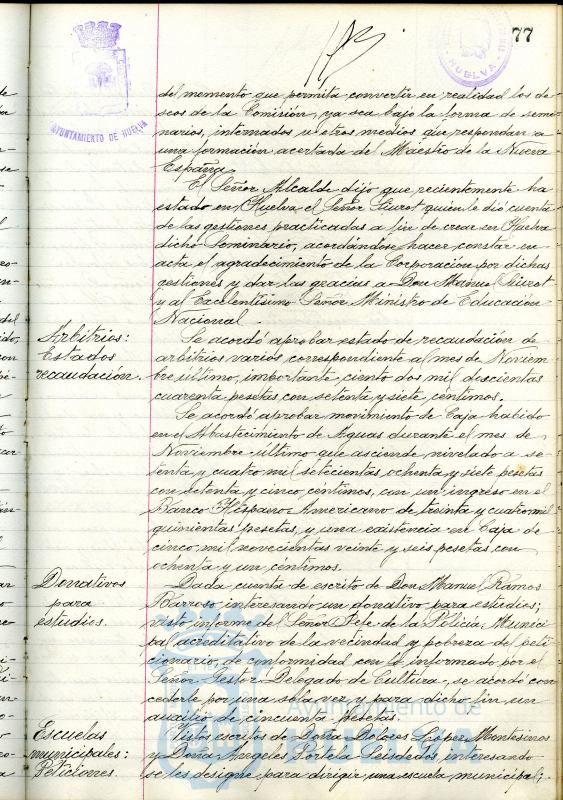 77
AYUNTAMIENTO DE HUELVA
HUELVA
del momento que permita convertir en realidad los de-
seos de la Comisión, ya sea bajo la forma de semi-
narios, internados u otros medios que respondan a
una formación acertada del Maestro de la Nueva
España.
El Señor Alcalde dijo que recientemente ha
estado en Huelva el Señor Siurot quien le dió cuenta
de las gestiones practicadas a fin de crear en Huelva
dicho Seminario, acordándose hacer constar en
acta el agradecimiento de la Corporación por dichas
gestiones y dar las gracias a Don Manuel Siurot
y al Excelentísimo Señor Ministro de Educación
Nacional.
Arbitrios:
Estados
recaudación.
Se acordó aprobar estado de recaudación de
arbitrios varios correspondiente al mes de Noviem-
bre último, importante ciento dos mil doscientas
cuarenta pesetas con setenta y siete céntimos.
Se acordó aprobar movimiento de Caja habido
en el Abastecimiento de Aguas durante el mes de
Noviembre último que asciende nivelado a se-
tenta y cuatro mil setecientas ochenta y siete pesetas
con setenta y cinco céntimos, con un ingreso en el
Banco Hispano-Americano de treinta y cuatro mil
quinientas pesetas, y una existencia en Caja de
cinco mil novecientas veinte y seis pesetas con
ochenta y un céntimos.
Donativos
para
estudios.
Dada cuenta de escrito de Don Manuel Ramos
Barroso interesando un donativo para estudios;
visto informe del Señor Jefe de la Policía Munici-
pal acreditativo de la vecindad y pobreza del peti-
cionario, de conformidad con lo informado por el
Señor Gestor Delegado de Cultura, se acordó con-
cederle por una sola vez y para dicho fin un
auxilio de cincuenta pesetas.
Ayuntamiento de
HUELVA
Escuelas
municipales:
Peticiones.
Vistos escritos de Doña Dolores López Montesinos
y Doña Angeles Portela Leisdedos, interesando
se les designe para dirigir una escuela municipal;